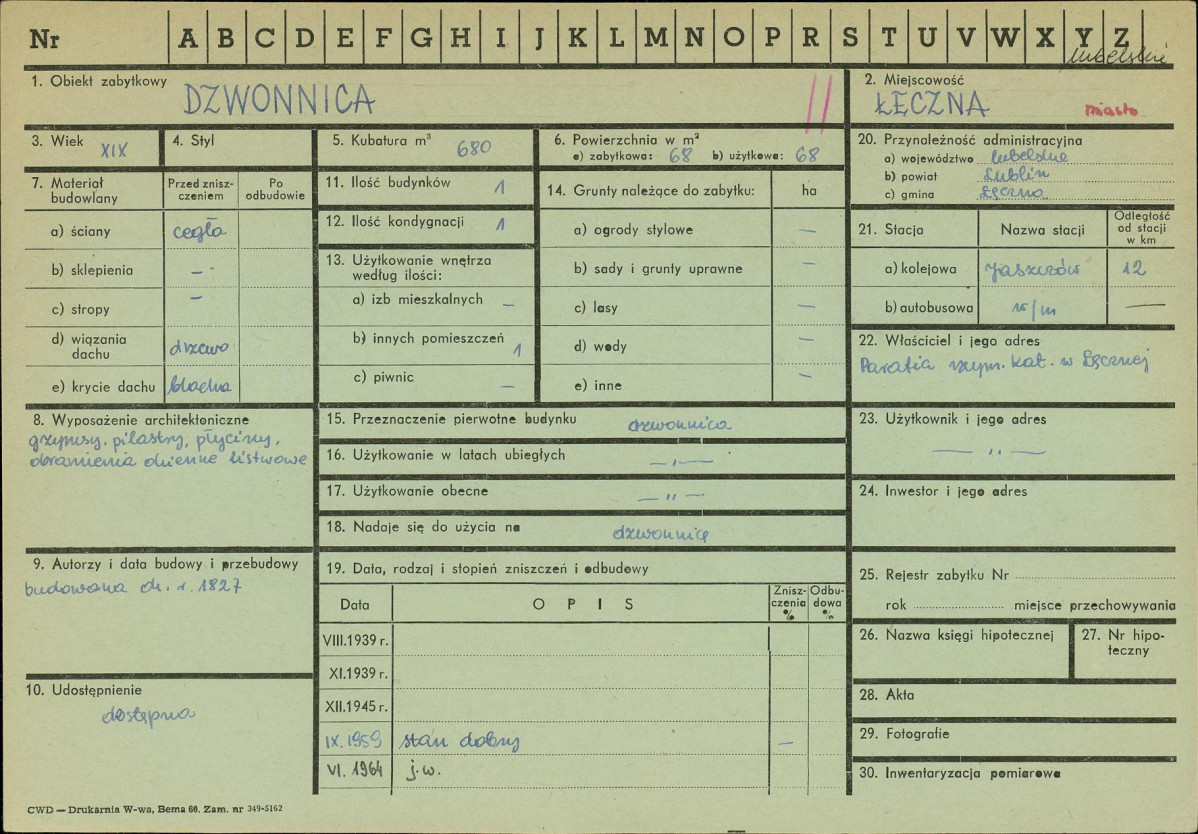 Nr A B C D E F G H I J K L M N O P R S T U V W X Y Z
lubelskie
1. Obiekt zabytkowy
DZWONNICA
II
2. Miejscowość
ŁĘCZNA miasto
3. Wiek XIX
4. Styl
5. Kubatura m³ 680
6. Powierzchnia w m²
a) zabytkowa: 68 b) użytkowa: 68
20. Przynależność administracyjna
a) województwo lubelskie
b) powiat Lublin
c) gmina Łęczna
7. Materiał budowlany
Przed zniszczeniem
Po odbudowie
a) ściany cegła
b) sklepienia –
c) stropy –
d) wiązania dachu drzewo
e) krycie dachu blacha
11. Ilość budynków 1
12. Ilość kondygnacji 1
13. Użytkowanie wnętrza
według ilości:
a) izb mieszkalnych –
b) innych pomieszczeń 1
c) piwnic –
14. Grunty należące do zabytku: ha
a) ogrody stylowe –
b) sady i grunty uprawne –
c) lasy –
d) wody –
e) inne –
21. Stacja
Nazwa stacji
Odległość
od stacji
w km
a) kolejowa Jaszczów 12
b) autobusowa n/m —
22. Właściciel i jego adres
Parafia rzym. kat. w Łęcznej
8. Wyposażenie architektoniczne
gzymsy, pilastry, płyciny,
obramienia okienne listwowe
15. Przeznaczenie pierwotne budynku dzwonnica
16. Użytkowanie w latach ubiegłych —„—
17. Użytkowanie obecne —"—
18. Nadaje się do użycia na dzwonnicę
23. Użytkownik i jego adres
— „ —
24. Inwestor i jego adres
9. Autorzy i data budowy i przebudowy
budowana ok. r. 1827
10. Udostępnienie
dostępna
19. Data, rodzaj i stopień zniszczeń i odbudowy
Data
OPIS
Zniszczenia %
Odbudowa %
VIII.1939 r.
XI.1939 r.
XII.1945 r.
IX.1959 stan dobry –
VI. 1964 j.w.
25. Rejestr zabytku Nr
rok miejsce przechowywania
26. Nazwa księgi hipotecznej
27. Nr hipoteczny
28. Akta
29. Fotografie
30. Inwentaryzacja pomiarowa
CWD — Drukarnia W-wa, Bema 60. Zam. nr 349-5162